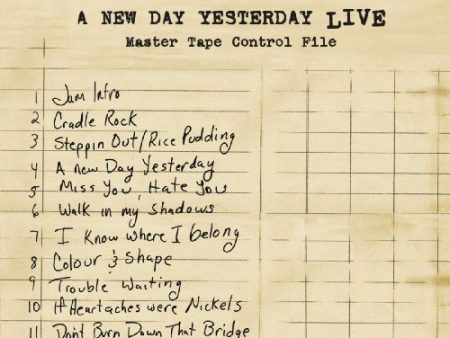 A NEW DAY YESTERDAY LIVE
Master Tape Control File
1 Jam Intro
2 Cradle Rock
3 Steppin Out/Rice Pudding
4 A new Day Yesterday
5 Miss You, Hate You
6 Walk in my Shadows
7 I Know where I belong
8 Colour & Shape
9 Trouble Waiting
10 If Heartaches were Nickels
11 Don't Burn Down That Bridge